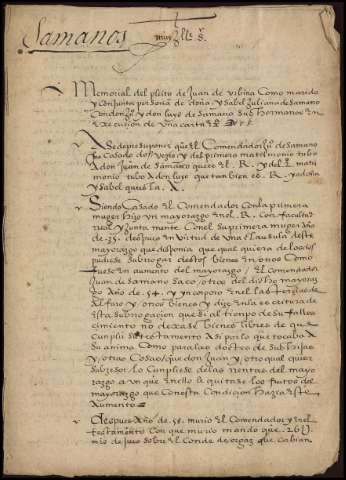 Samanos
muy Ills. s.
Memorial del pleito de Juan de urbina Como marido
y conjunta persona de doña ysabel Juliana de samano
Con don Jun y don luys de Samano sus hermanos en
execucion de una carta
Ase de presuponer que el Comendador Jun de Samano
fue casado dos veçes y del primero matrimonio tubo
A don Juan de Samano que es el R. y del 2 matri
monio tubo A don luys que tanbien es R. y a doña
ysabel que es la A.
Siendo Casado el Comendador Con la primera
muger hizo un mayorazgo en el R. Con facultad
real y junta mente Con el su primera muger año
de 35. despues en virtud de una clausula deste
mayorazgo que disponia que qual quiera de los dos
pudiese subrrogar çiertos bienes en otros Como
fuese en aumento del mayorazgo / el Comendador
Juan de Samano saco çiertos del dicho mayoraz
go Año de 54. y yncorporo en el las terçias de
Alfaro y otros bienes y dize en la escritura de
esta subrrogacion que si al tiempo de su falles
cimiento no dexase bienes libres de que
Cunplir su testamento Asi por lo que tocaba A
su anima Como para los dotes de sus hijas
y otras Cosas / que don Juan y otro qual quier
subçesor lo Cunpliese de las rentas del mayo
razgo a un que en ello se quitase los frutos del
mayorazgo que Con esta Condiçion hazia este
Aumento
despues Año de 58. murio el Comendador y en el
testamento Con que murio mando que 26 U
mrs de juro sobre el Conde de orgaz que Cabian